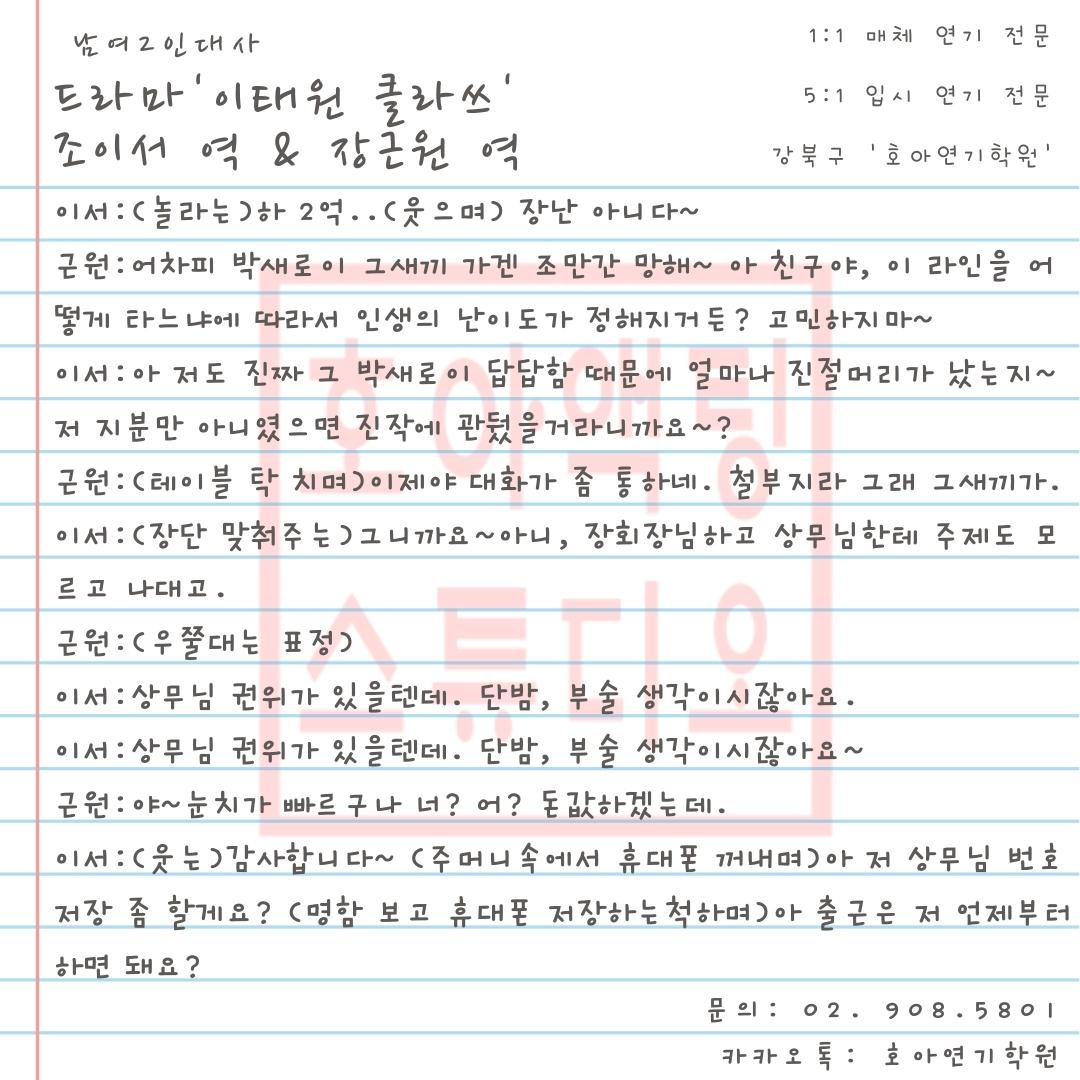 남여2인대사
드라마'이태원 클라쓰'
조이서 역 & 장근원 역
1:1 매체 연기 전문
5:1 입시 연기 전문
강북구 '호아연기학원'
이서:(놀라는)하 2억..(웃으며) 장난 아니다~
근원:어차피 박새로이 그새끼 가겐 조만간 망해~ 아 친구야, 이 라인을 어
떻게 타느냐에 따라서 인생의 난이도가 정해지거든? 고민하지마~
이서:아 저도 진짜 그 박새로이 답답함 때문에 얼마나 진절머리가 났는지~
저 지분만 아니였으면 진작에 관뒀을거라니까요~?
근원:(테이블 탁 치며)이제야 대화가 좀 통하네. 철부지라 그래 그새끼가.
이서:(장단 맞춰주는)그니까요~아니, 장회장님하고 상무님한테 주제도 모
르고 나대고.
근원:(우쭐대는 표정)
이서:상무님 권위가 있을텐데. 단밤, 부술 생각이시잖아요.
이서:상무님 권위가 있을텐데. 단밤, 부술 생각이시잖아요~
근원:야~눈치가 빠르구나 너? 어? 돈값하겠는데.
이서:(웃는)감사합니다~ (주머니속에서 휴대폰 꺼내며)아 저 상무님 번호
저장 좀 할게요? (명함 보고 휴대폰 저장하는척하며)아 출근은 저 언제부터
하면 돼요?
문의: 02. 908.5801
카카오톡: 호아연기학원
호아액팅
스튜디오